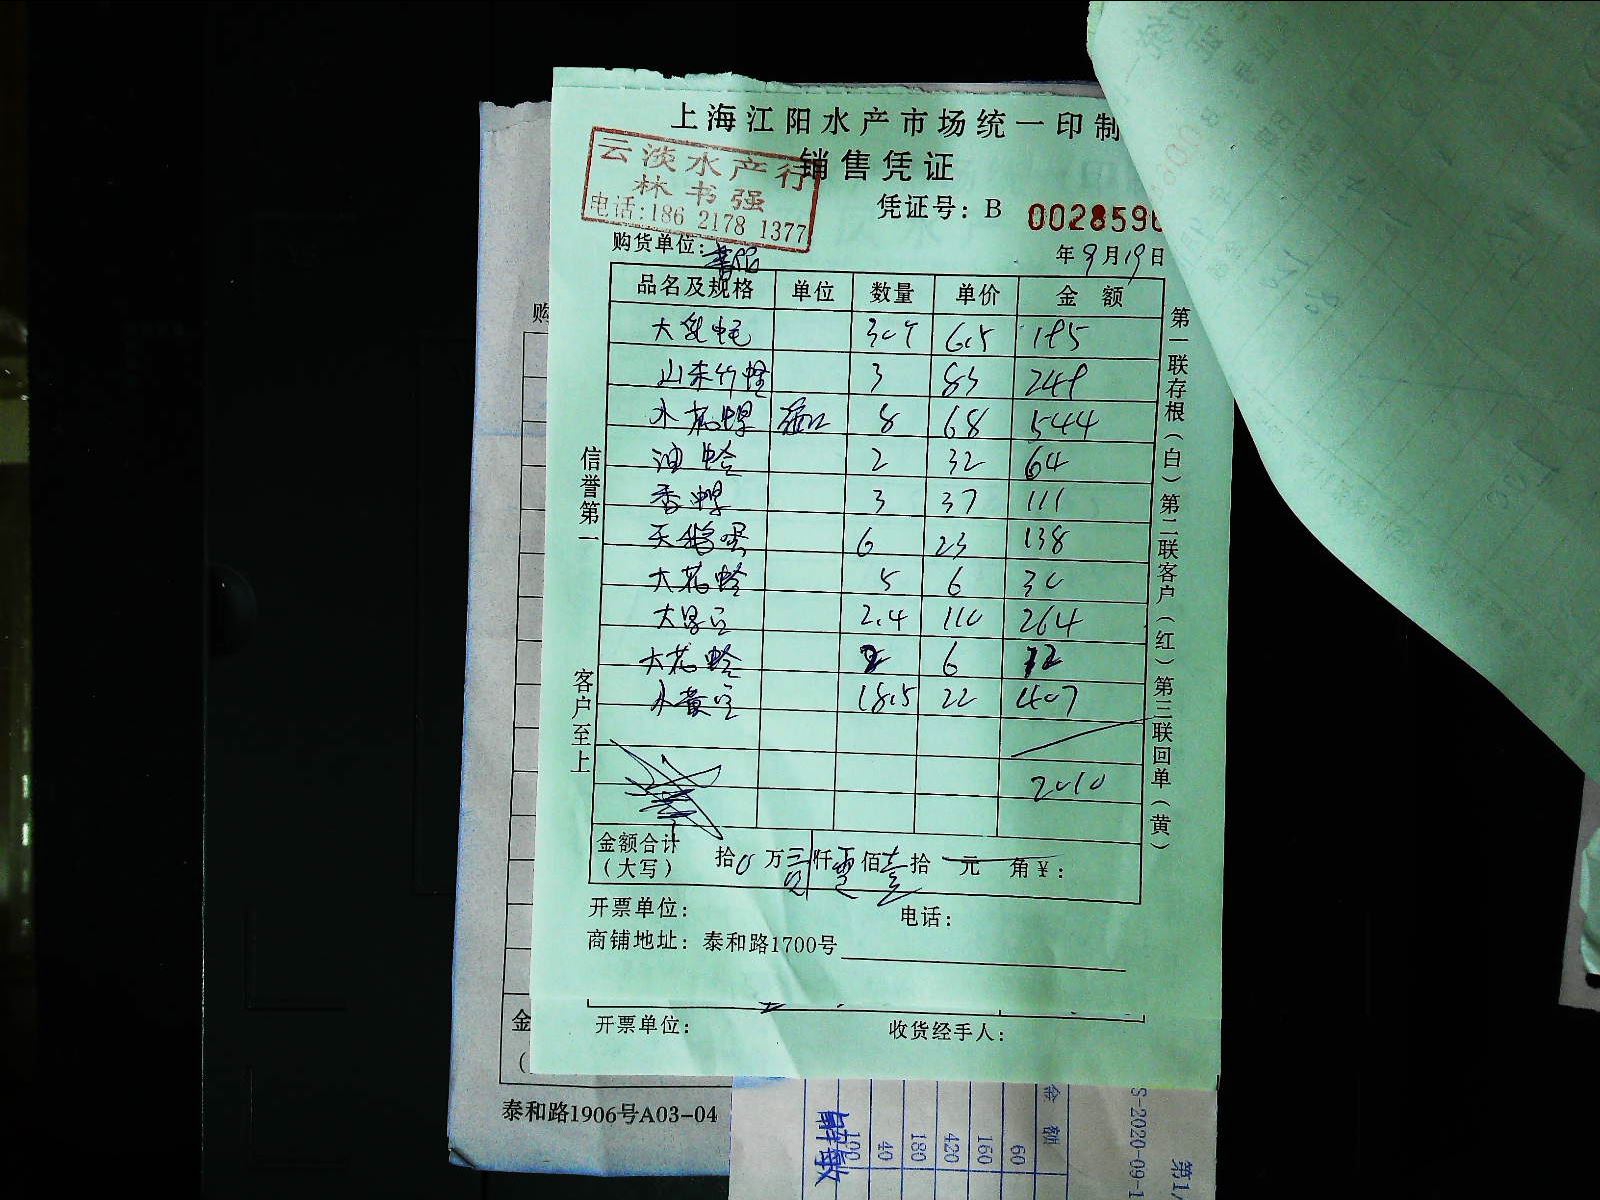 上海江阳水产市场统一印制
销售凭证
云淡水产行
林书强
电话:186 2178 1377
凭证号: B 0028596
购货单位:
年 9月19日
品名及规格 单位 数量 单价 金 额
6.5 195
3 83 249
8 68 544
油蛤 2 32 64
香螺 3 37 111
天鹅蛋 6 23 138
大花蛤 5 6 30
2.4 110 264
大花蛤 2 6 12
小黄 18.5 22 407
2010
金额合计
(大写) 拾0万贰仟零佰壹拾 元 角¥:
开票单位: 电话:
商铺地址: 泰和路1700号
开票单位: 收货经手人:
信誉第一
客户至上
第一联存根(白)第二联客户(红)第三联回单(黄)
购
金
(
泰和路1906号A03-04
金 额
60
160
420
180
40
100
S-2020-09-1
第1/